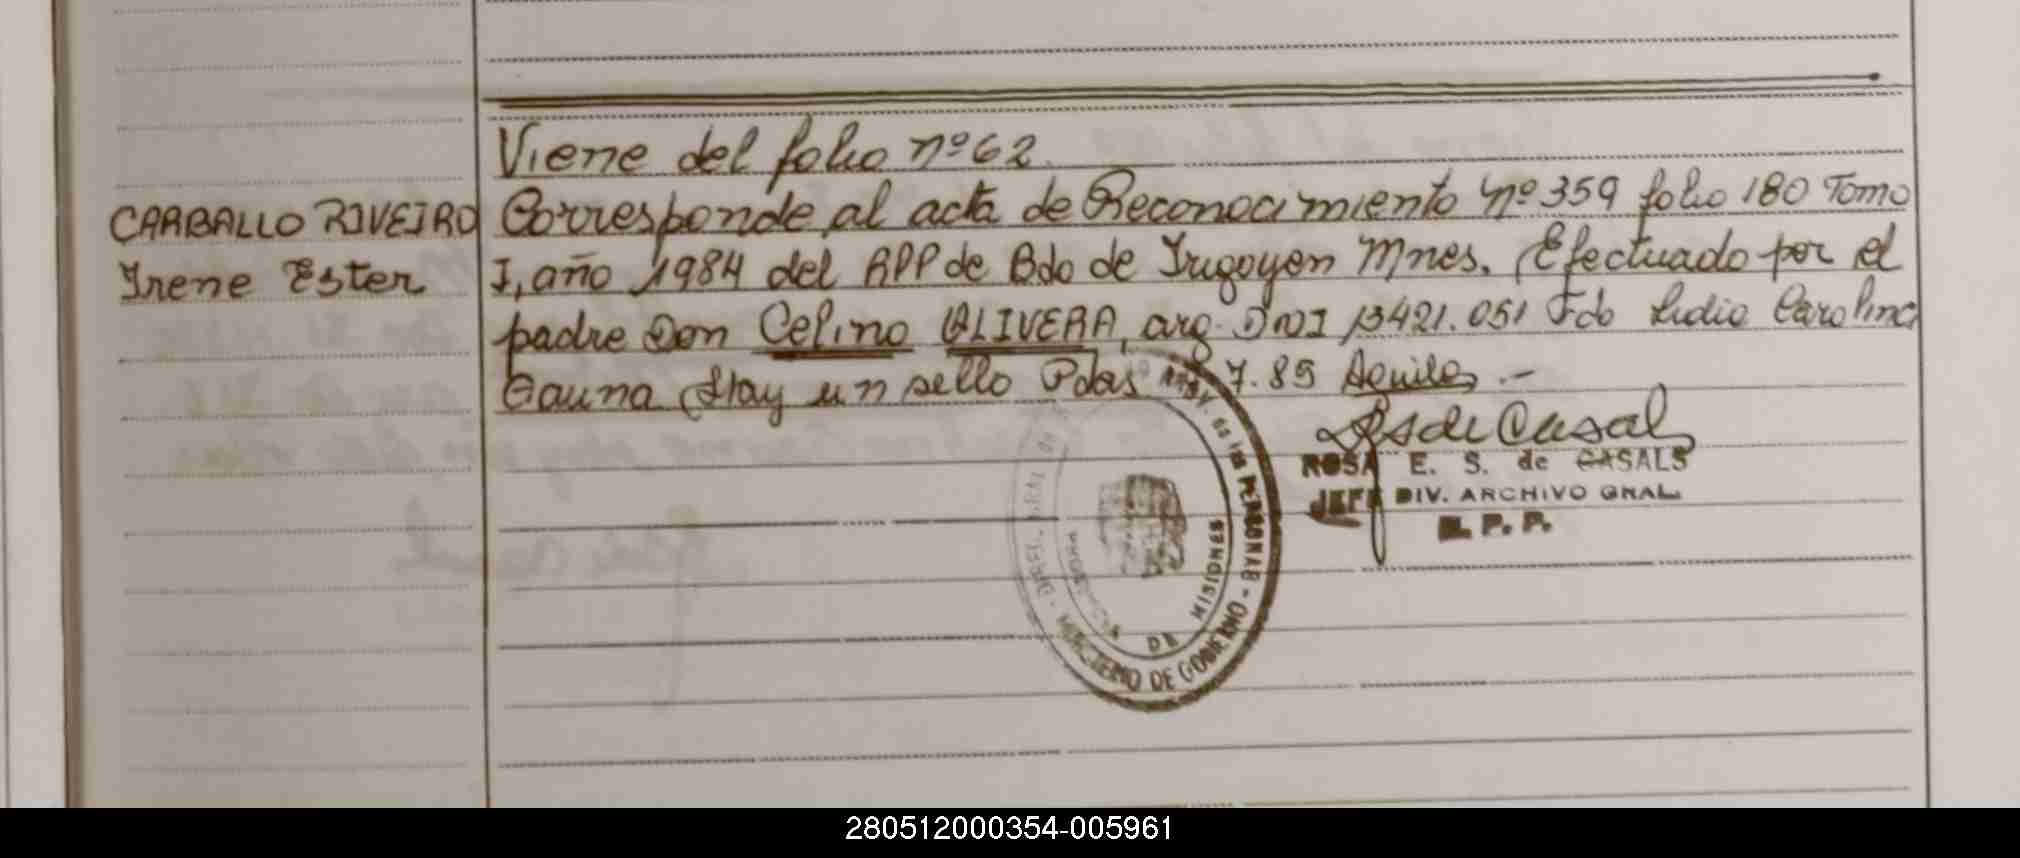 Viene del folio nº 62.
CARBALLO RIVEIRO
Irene Ester
Corresponde al acta de Reconocimiento nº 359 folio 180 Tomo
I, año 1984 del RPP de Bdo de Irigoyen Mnes. Efectuado por el
padre Don Celino OLIVERA, arg. DNI 13421.051 Fdo Lidia Carolina
Gauna Hay un sello Pdas 7.85
ROSA E. S. de CASALS
JEFE DIV. ARCHIVO GRAL.
R. P. P.
DE LAS PERSONAS - MINISTERIO DE GOBIERNO
DE MISIONES
280512000354-005961